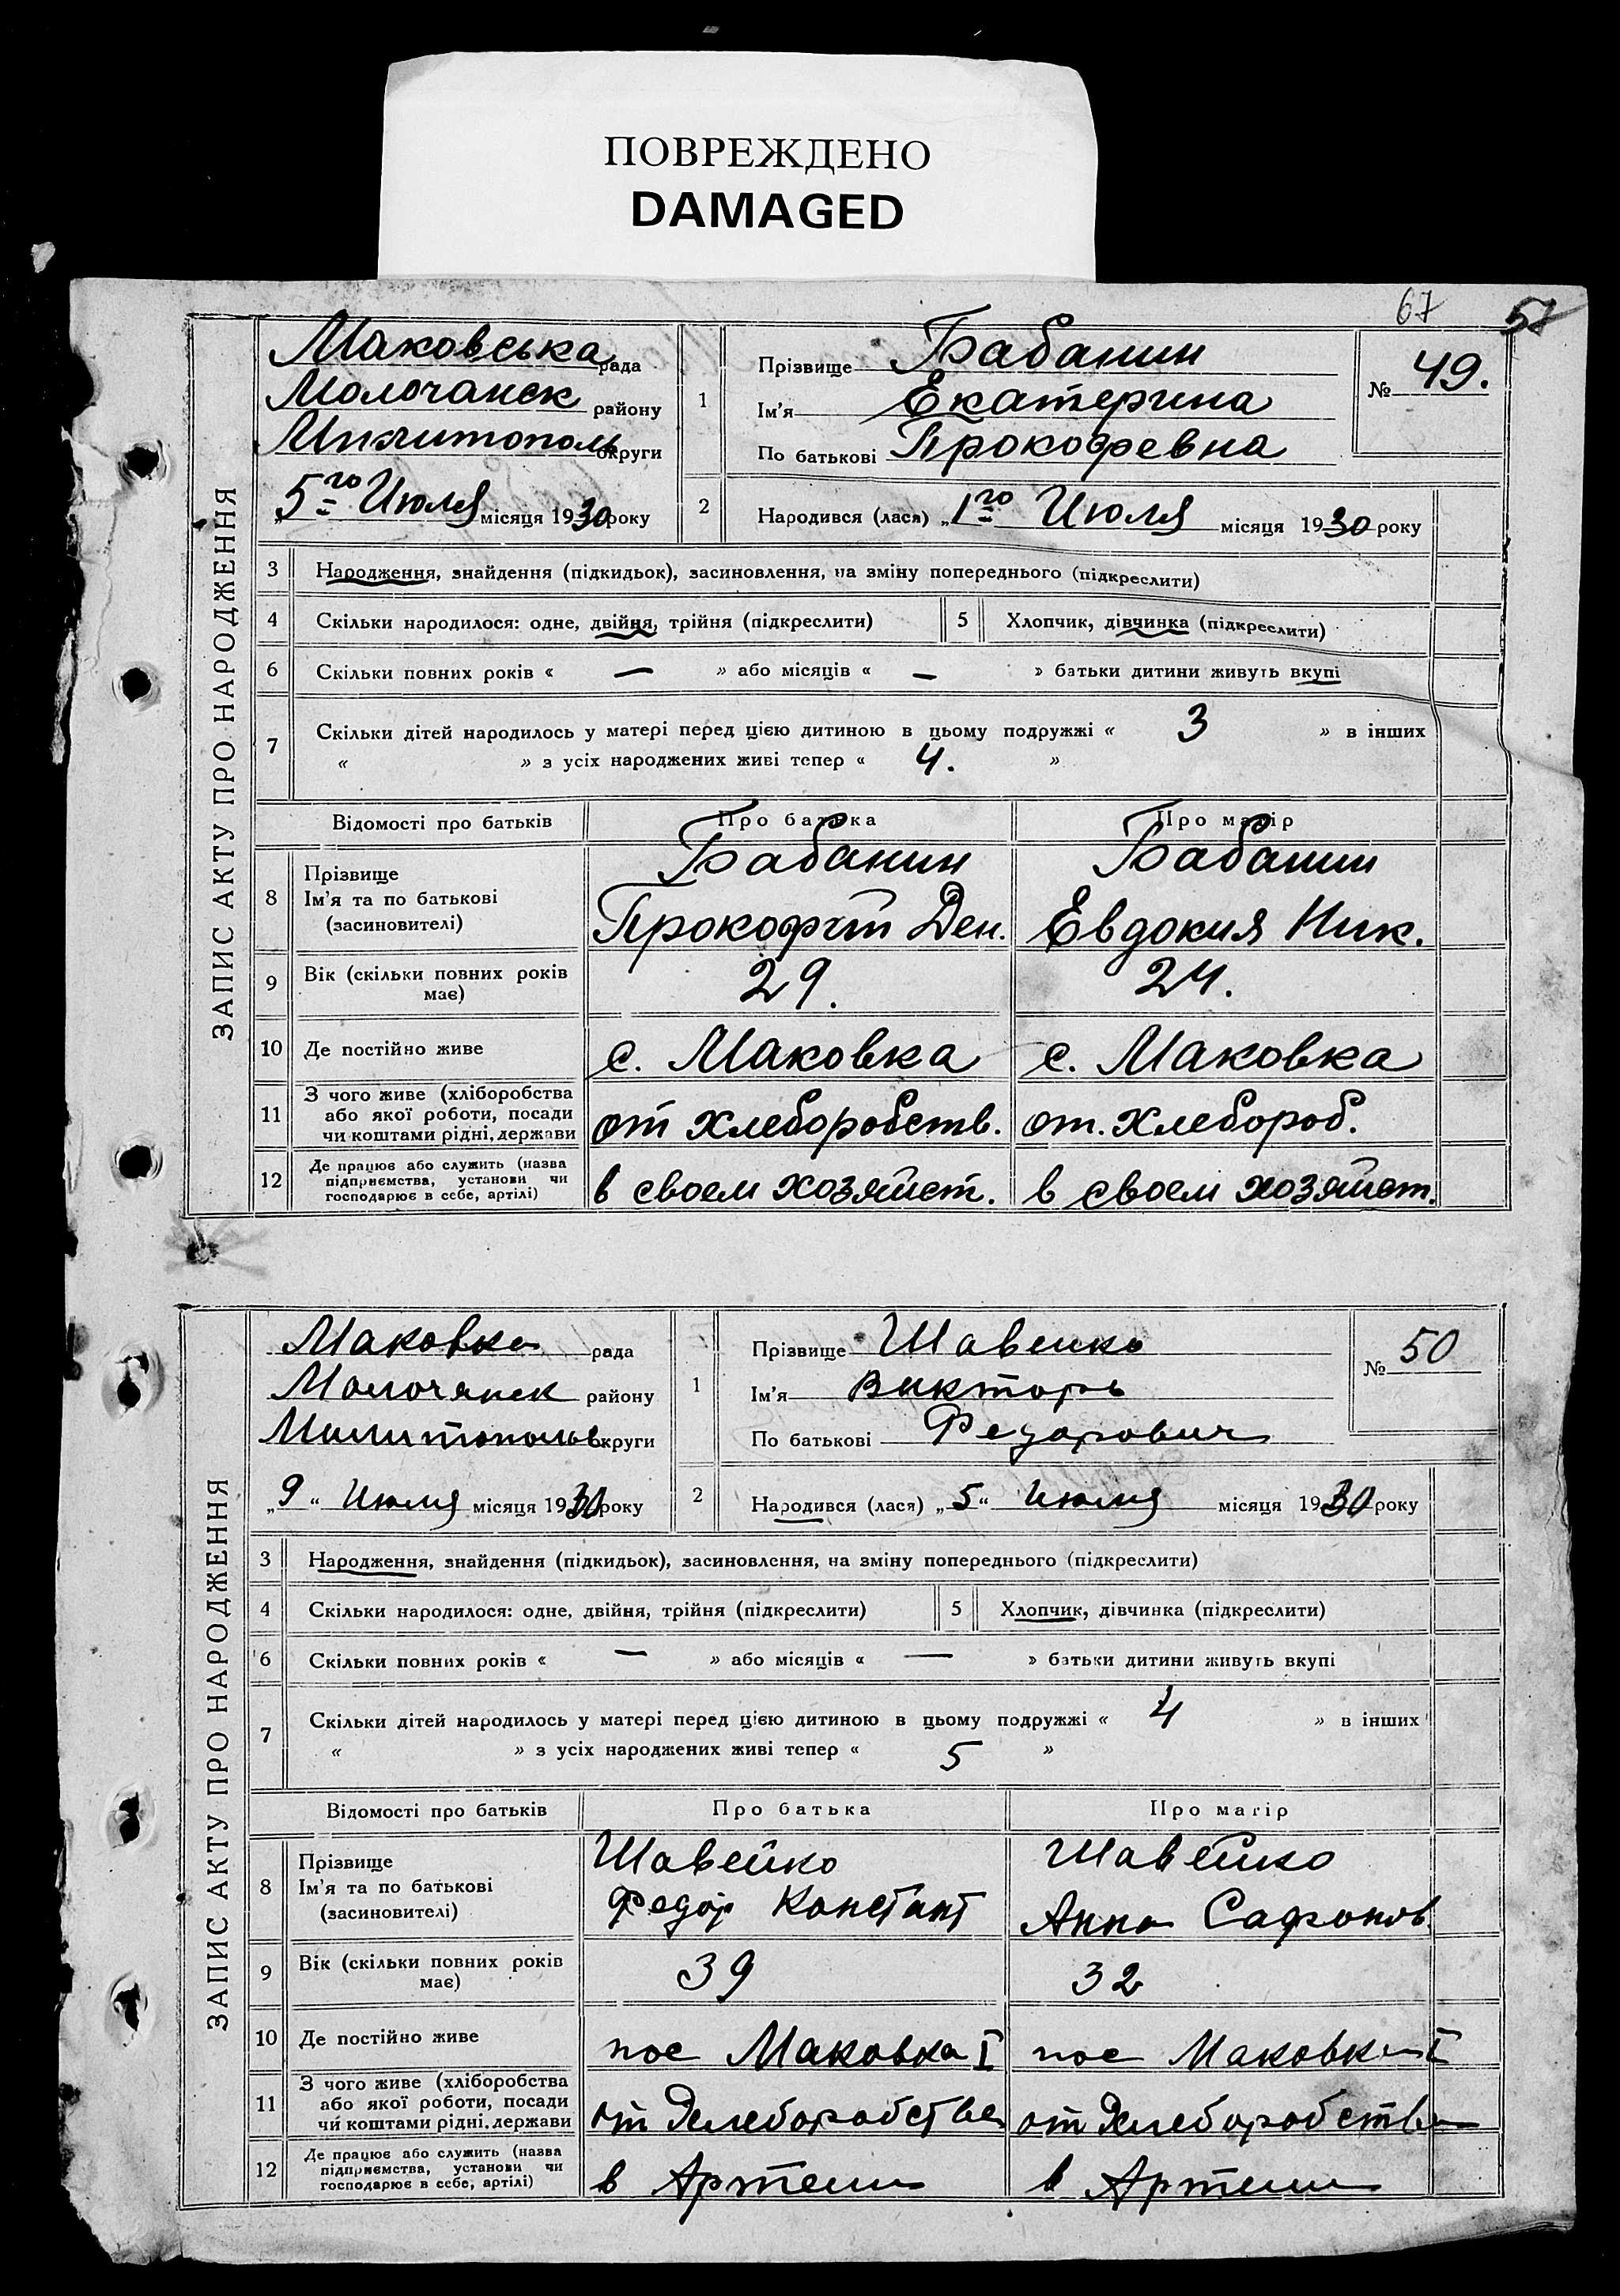 ПОВРЕЖДЕНО
DAMAGED
67 57
ЗАПИС АКТУ ПРО НАРОДЖЕННЯ
Маковська рада
Молочанск району
Милитополь округи
5го Июля місяця 1930 року
1 Прізвище Бабанин
Ім’я Екатерина
По батькові Прокофевна
№ 49.
2 Народився (лася) „1го Июля місяця 1930 року
3 Народження, знайдення (підкидьок), засиновлення, на зміну попереднього (підкреслити)
4 Скільки народилося: одне, двійня, трійня (підкреслити) 5 Хлопчик, дівчинка (підкреслити)
6 Скільки повних років « — » або місяців « — » батьки дитини живуть вкупі
7 Скільки дітей народилось у матері перед цією дитиною в цьому подружжі « 3 » в інших
« » з усіх народжених живі тепер « 4. »
Відомості про батьків Про батька Про матір
8 Прізвище Бабанин Бабанин
Ім’я та по батькові
(засиновителі) Прокофий Ден. Евдокия Ник.
9 Вік (скільки повних років
має) 29. 24.
10 Де постійно живе с. Маковка с. Маковка
11 З чого живе (хліборобства
або якої роботи, посади
чи коштами рідні, держави от хлеборобств. от. хлебороб.
12 Де працює або служить (назва
підприємства, установи чи
господарює в себе, артілі) в своем хозяйст. в своем хозяйст.
ЗАПИС АКТУ ПРО НАРОДЖЕННЯ
Маковка рада
Молочанск району
Милитополь округи
„9“ Июля місяця 1930 року
1 Прізвище Шавейко
Ім’я Викторъ
По батькові Федорович
№ 50
2 Народився (лася) „5“ Июля місяця 1930 року
3 Народження, знайдення (підкидьок), засиновлення, на зміну попереднього (підкреслити)
4 Скільки народилося: одне, двійня, трійня (підкреслити) 5 Хлопчик, дівчинка (підкреслити)
6 Скільки повних років « — » або місяців « — » батьки дитини живуть вкупі
7 Скільки дітей народилось у матері перед цією дитиною в цьому подружжі « 4 » в інших
« » з усіх народжених живі тепер « 5 »
Відомості про батьків Про батька Про матір
8 Прізвище Шавейко Шавейко
Ім’я та по батькові Федор Констант Анна Сафонов.
(засиновителі)
9 Вік (скільки повних років
має) 39 32
10 Де постійно живе пос Маковка I пос Маковка I
11 З чого живе (хліборобства
або якої роботи, посади
чи коштами рідні, держави от Хлеборобства от Хлеборобства
12 Де працює або служить (назва
підприємства, установи чи
господарює в себе, артілі) в Артели в Артели